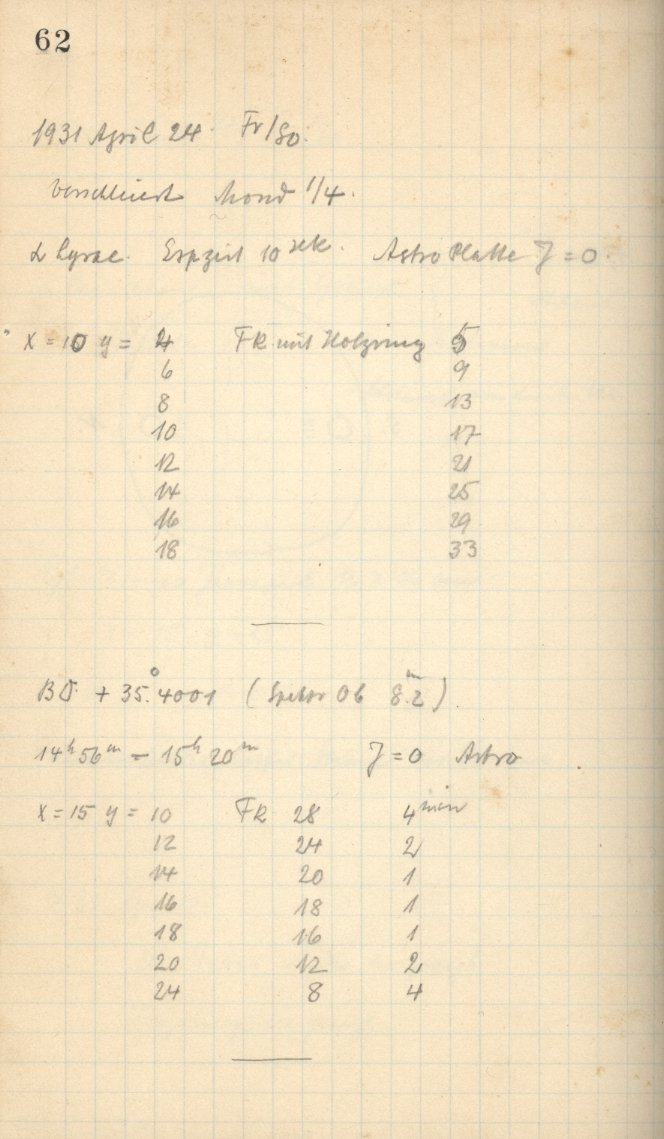 62
1931 April 24. Fr/So.
verschleiert Mond 1/4.
α Lyrae. Expzeit 10 sek. Astro Platte J = 0
x = 10 y = 4 FR mit Holzring 5
6 9
8 13
10 17
12 21
14 25
16 29
18 33
BD. + 35°.4001 (Spektr Ob 8.2m).
14h 56m – 15h 20m J = 0 Astro
x = 15 y = 10 FR 28 4 min
12 24 2
14 20 1
16 18 1
18 16 1
20 12 2
24 8 4